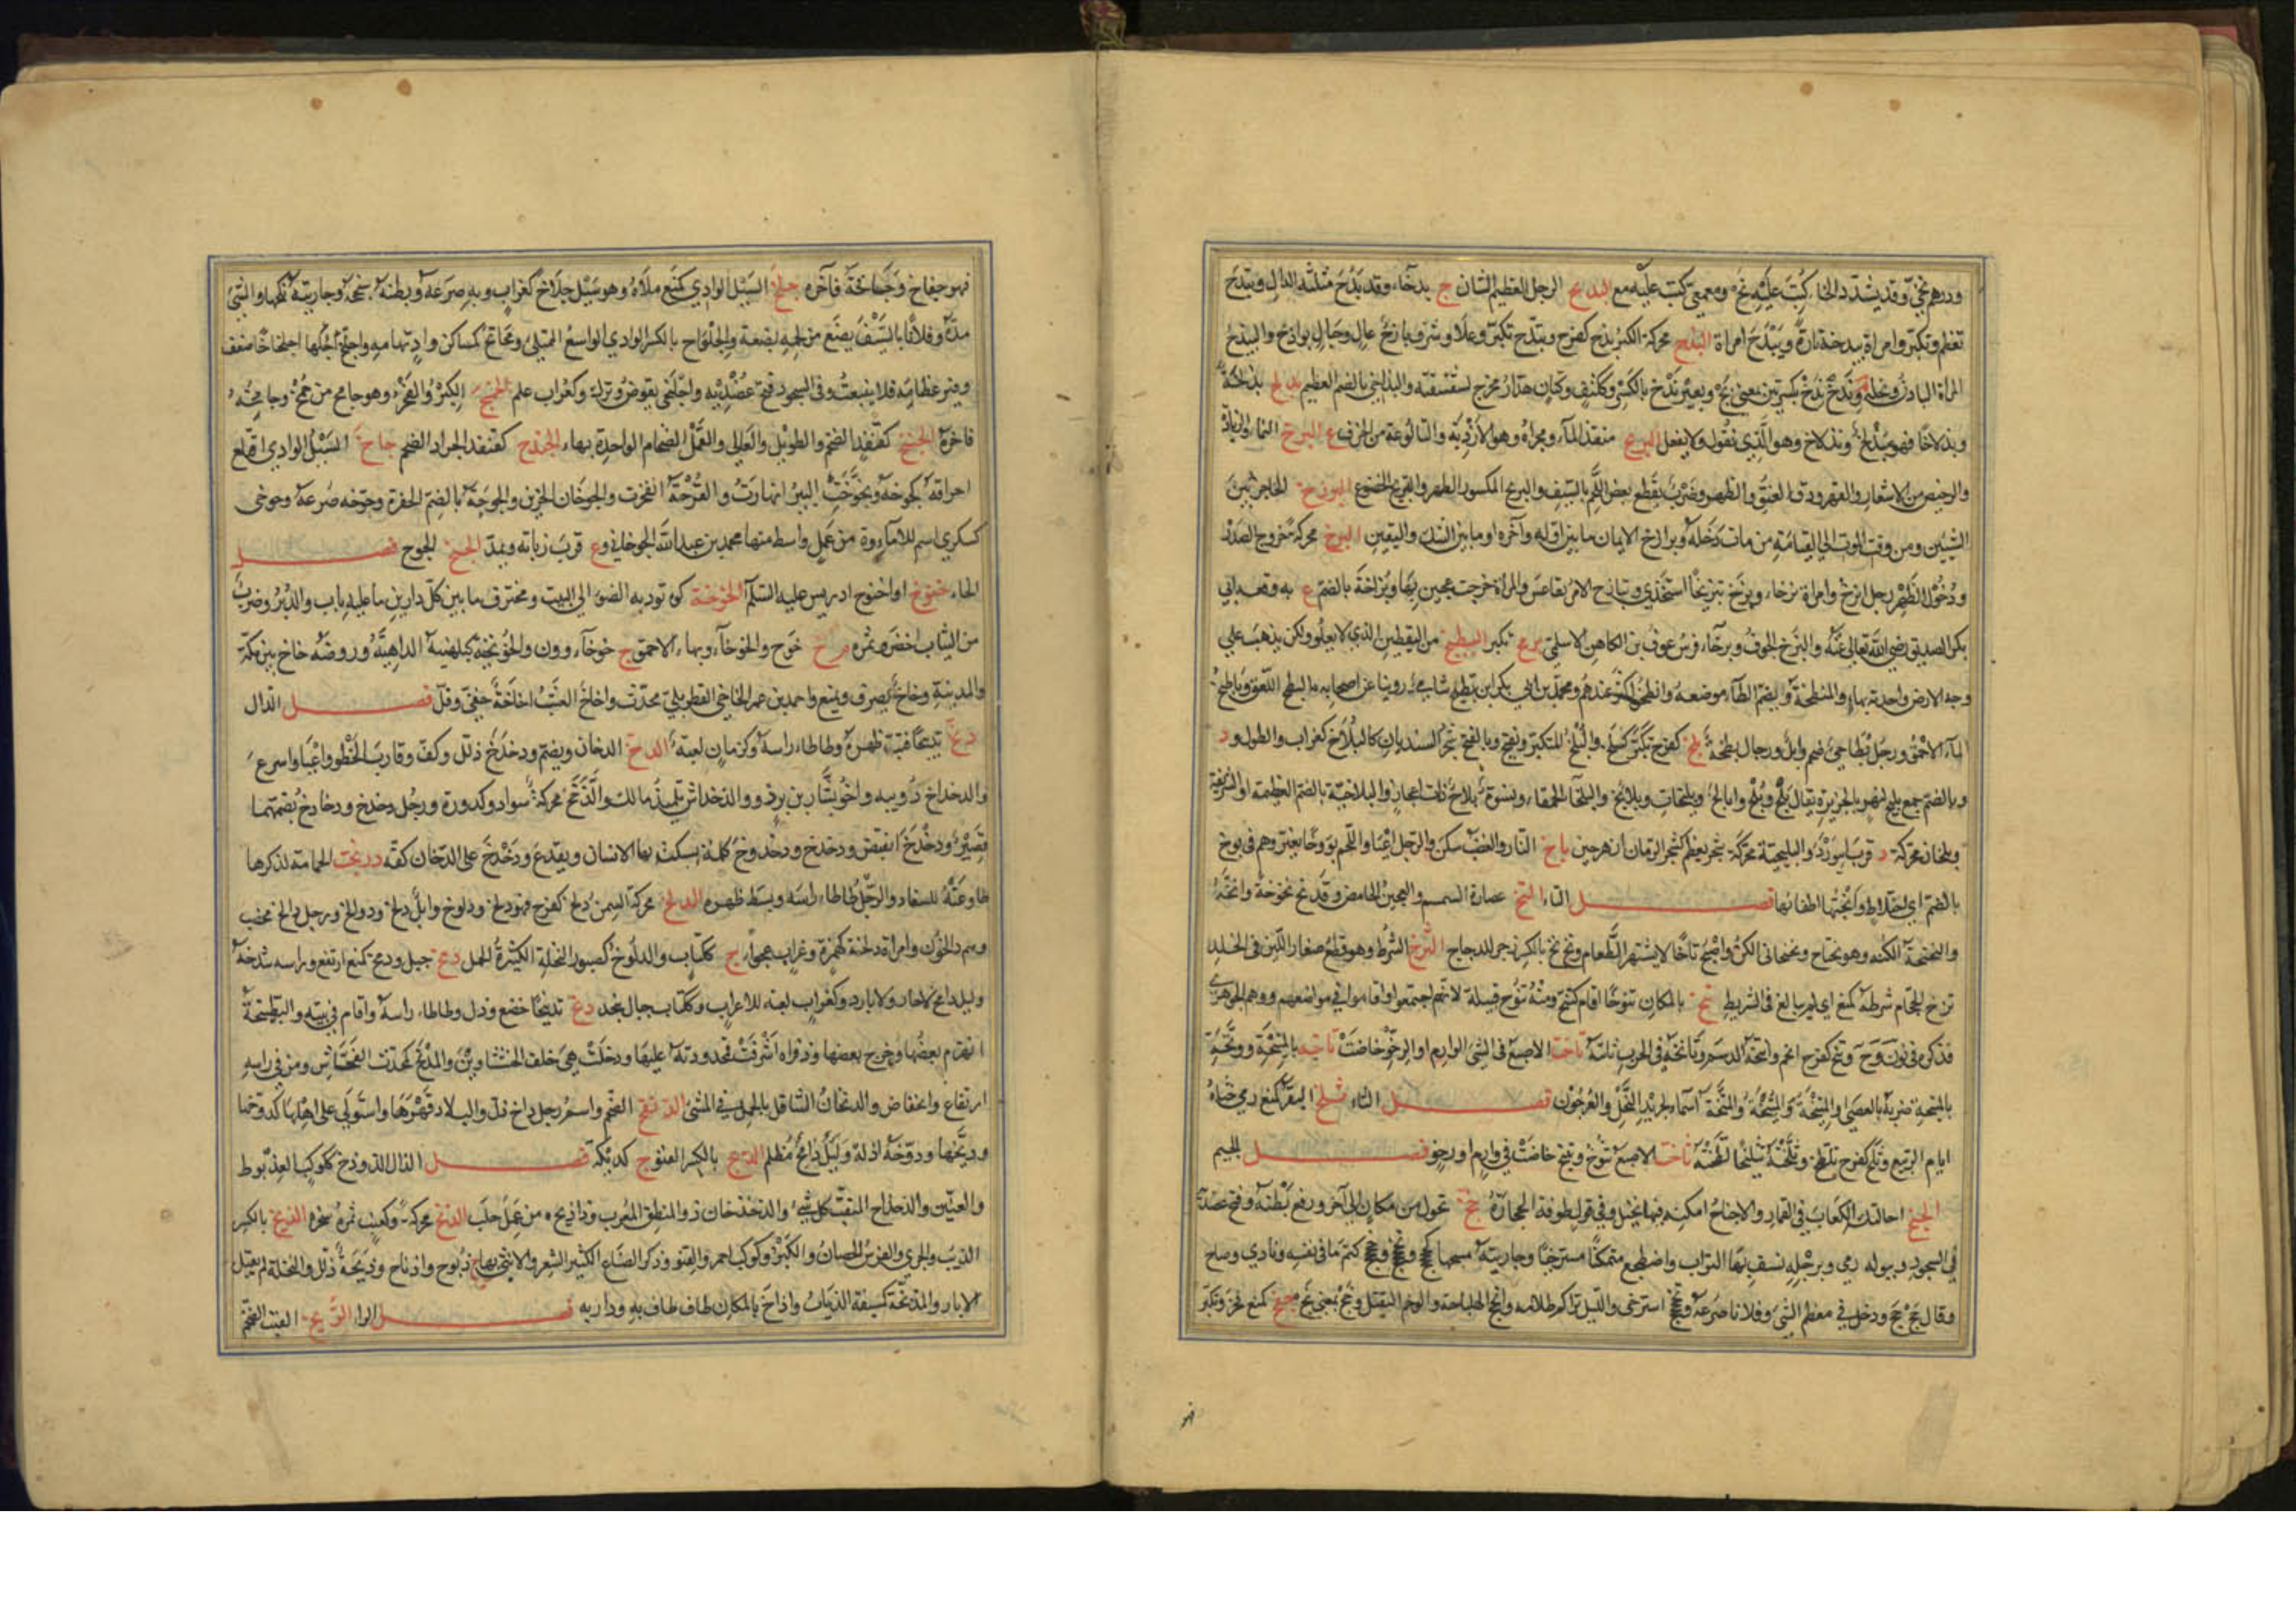 ودرهم بخي وقد يشدد الخاء كتب عليه بخ ومعمعي كتب عليه مع البديخ الرجل العظيم الشان ج بدخاء وقد بدخ مثلثة الدال وتبدخ
تعظم وتكبر وامراة بيدخة تارة وبيدخ امراة البذخ محركة الكبر بذخ كفرح وتبذخ تكبر وعلا وشرف باذخ عال وجبال بواذخ والبيذخ
المراة البادن وبذخ بذخ بكسرتين بمعنى بخ وبعير بذخ بالكسر وككتف وكتان هدار مخرج لشقشقته والبذاخي بالضم العظيم بذلخ بذلخة
وبذلاخا فهو مبذلخ وبذلاخ وهو الذي يقول ولا يفعل البربخ منفذ الماء ومجراه وهو الاردبة والبالوعة من الخزف ع البرخ النماء والزيادة
والرخيص من الاسعار والقهر ودق العنق والظهر وضرب يقطع بعض اللحم بالسيف والبريخ المكسور الظهر والتبريخ الخضوع البرزخ الحاجز بين
الشيئين ومن وقت الموت الى القيامة من مات دخله وبرازخ الايمان ما بين اوله وآخره او ما بين الشك واليقين البزخ محركة خروج الصدر
ودخول الظهر رجل ابزخ وامراة بزخاء وبزخ تبزيخا استخذى وتبازخ الامر تقاعس والمراة خرجت عجيزتها وبزاخة بالضم ع به وقعة ابي
بكر الصديق رضي الله تعالى عنه والبزخ الجرف وبزخاء فرس عوف بن الكاهن الاسلمي بزمخ تكبر البطيخ من اليقطين الذي لا يعلو ولكن يذهب على
وجه الارض واحدته بهاء والمبطخة وبضم الطاء موضعه وابطخوا كثر عندهم ومحمد بن ابي بكر ابن بطيخ شاب روينا عن اصحابه والبطخ اللعق وباطخ
الماء الاحمق ورجل بطاخي ضخم وابل ورجال بطخة بلخ كفرح تكبر كتبلخ والبلخ المتكبر ويفتح وبالفتح شجر السنديان كالبلاخ كغراب والطول ود
وبالضم جمع بليخ لنهر بالجزيرة يقال بلخ وبلخ وابالخ وبليخات وبلائخ والبلخاء الحمقاء ونسوة بلاخ ذات اعجاز والبلاخية بالضم العظيمة او الشريفة
وبلخان محركة د قرب ابيورد والبليخية محركة شجر يعظم كشجر الرمان ازهر حسن باخ النار والغضب سكن والرجل اعيا واللحم بووخا تغير وهم في بوخ
بالضم اي اختلاط وابختها اطفاتها فصل التاء التخ عصارة السمسم والعجين الحامض وقد تخ تخوخة واتخه
والتختخة اللكنة وهو تختاخ وتختخاني الكن واصبح تاخا لا يشتهي الطعام وتخ تخ بالكسر زجر للدجاج الترخ الشرط وهو قطع صغار اللين في الجلد
ترخ الحجام شرطه كمنع اي لم يبالغ في الشريط تنخ بالمكان تنوخا اقام كتنخ ومنه تنوخ قبيلة لانهم اجتمعوا واقاموا في مواضعهم ووهم الجوهري
فذكره في نوخ وتنخ كفرح اتخم واتنخه الدسم وتانخه في الحرب ثابته تاخت الاصبع في الشيء الوارم او الرخو خاضت تاخه بالمتيخة وتيخه
بالمتيخة ضربه بالعصا والمتيخة والمتيخة والمتيخة اسماء لجريد النخل والعرجون فصل الثاء ثلخ البقر كمنع رمى خثاه
ايام الربيع وثلخ كفرح تلطخ وثلخته تثليخا لطخته ثاخت الاصبع تثوخ وتثيخ خاضت في وارم او رخو فصل الجيم
الجبخ اجالتك الكعاب في القمار والاجباخ امكنة فيها نخيل وفي قول طرفة الحجارة جخ تحول من مكان الى آخر ورفع بطنه وفتح عضديه
في السجود وببوله رمى وبرجله نسف بها التراب واضطجع متمكنا مسترخيا وجاريته مسحها كجخجخ وتجخجخ وجخجخ كتم ما في نفسه ونادى وصاح
وقال جخ جخ ودخل في معظم الشيء وفلانا صرعه وتجخجخ استرخى والليل تراكم ظلامه والجخ الهلباجة والوخم الثقيل وجخ بمعنى بخ جفخ كمنع فخر وتكبر
فهو جفاخ وجافخة فاخره جلخ السيل الوادي كمنع ملأه وهو سيل جلاخ كغراب وبه صرعه وبطنه سحجه وجاريته نكحها والشيء
مده وفلانا بالسيف بضع من لحمه بضعة والجلواخ بالكسر الوادي الواسع الممتلئ وجلخ كمساكن واد بتهامة واجلخ اجلخاخا ضعف
وفتر عظامه فلا ينبعث وفي السجود فتح عضديه واجلخى تقوض وبرك وكغراب علم الجمخ الكبر والفخر وهو جامخ من جمخ وجامخه
فاخره الجنبخ كقنفذ الضخم والطويل والعالي والقمل الضخام الواحدة بهاء الجندخ كقنفذ الجراد الضخم جاخ السيل الوادي اقتلع
اجرافه كجوخه وتجوخت البئر انهارت والقرحة انفجرت والجوخان الجرين والجوخة بالضم الحفرة وجوخه صرعه وجوخى
كسكرى اسم للاماء وة من عمل واسط منها محمد بن عبدالله الجوخاني وع قرب زبالة ويمد الجيخ الجوخ فصل
الخاء خنوخ او اخنوخ ادريس عليه السلم الخوخة كوة تؤدي الضوء الى البيت ومخترق ما بين كل دارين ما عليه باب والدبر وضرب
من الثياب اخضر وثمره م ج خوخ والخوخاء وبهاء الاحمق ج خوخاء وون والخويخية كبلهنية الداهية وروضة خاخ بين مكة
والمدينة وخاخ يصرف ويمنع واحمد بن عمر الخاخي القطربلي محدث واخاخ العشب اخاخة خفي وقل فصل الدال
دبخ تدبيخا قبب ظهره وطاطا راسه وكزمان لعبة الدخ الدخان ويضم ودخدخ ذلل وكف وقارب الخطو واعيا واسرع
والدخداخ دويبة واخو بشار بن برد ووالد خداش تلميذ مالك والدخخ محركة سواد وكدورة ورجل دخدخ ودخادخ بضمتهما
قصير وتدخدخ انقبض ودخدخ ودخدوخ كلمة يسكت بها الانسان ويقدع ودخدخ على الدخان كفه دربخت الحمامة لذكرها
طاوعته للسفاد والرجل طاطا راسه وبسط ظهره الدلخ محركة السمن دلخ كفرح فهو دلخ ودلوخ وابل دلخ ودوالخ ورجل دالخ مخصب
وهم دالخون وامراة دلخة كهمزة وغراب عجزاء ج ككتاب والدلوخ كصبور النخلة الكثيرة الحمل دمخ جبل ودمخ كمنع ارتفع وراسه شدخه
وليل دامخ لا حار ولا بارد وكغراب لعبة للاعراب وككتاب جبال بنجد دنخ تدنيخا خضع وذل وطاطا راسه واقام في بيته والبطيخة
انهزم بعضها وخرج بعضها وذفراه اشرفت قمحدوته عليها ودخلت هي خلف الخششاوين والمدنخ كمحدث الفحاش ومن في راسه
ارتفاع وانخفاض والدنخان التثاقل بالحمل في المشي الدنفخ الضخم واسم رجل داخ ذل والبلاد قهرها واستولى على اهلها كدوخها
وديخها ودوخه اذله وليل دائخ مظلم الديخ بالكسر القنو ج كديكة فصل الذال الذوذخ ككوكب العذيوط
والعنين والذخذاخ المنقب كل شيء والذخذخان ذو المنطق المعرب وذاذيخ ة من عمل حلب الذمخ محركة وكعنب ثمر شجرة الذيخ بالكسر
الذئب والجري والفرس الحصان والكبر وكوكب احمر والقنو وذكر الضباع الكثير الشعر والانثى بهاء ج ذيوخ واذياخ وذيخه ذلله والنخلة لم تقبل
الابار والمذيخة كمسبعة الذئاب واذاخ بالمكان طاف طاف به ودار به فصل الراء الربيخ القتب الضخم